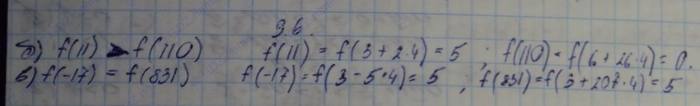 9.6.
б) f(11) > f(110) f(11) = f(3+2·4) = 5 ; f(110) = f(6+26·4) = 0.
в) f(-17) = f(831) f(-17) = f(3-5·4) = 5 ; f(831) = f(3+207·4) = 5